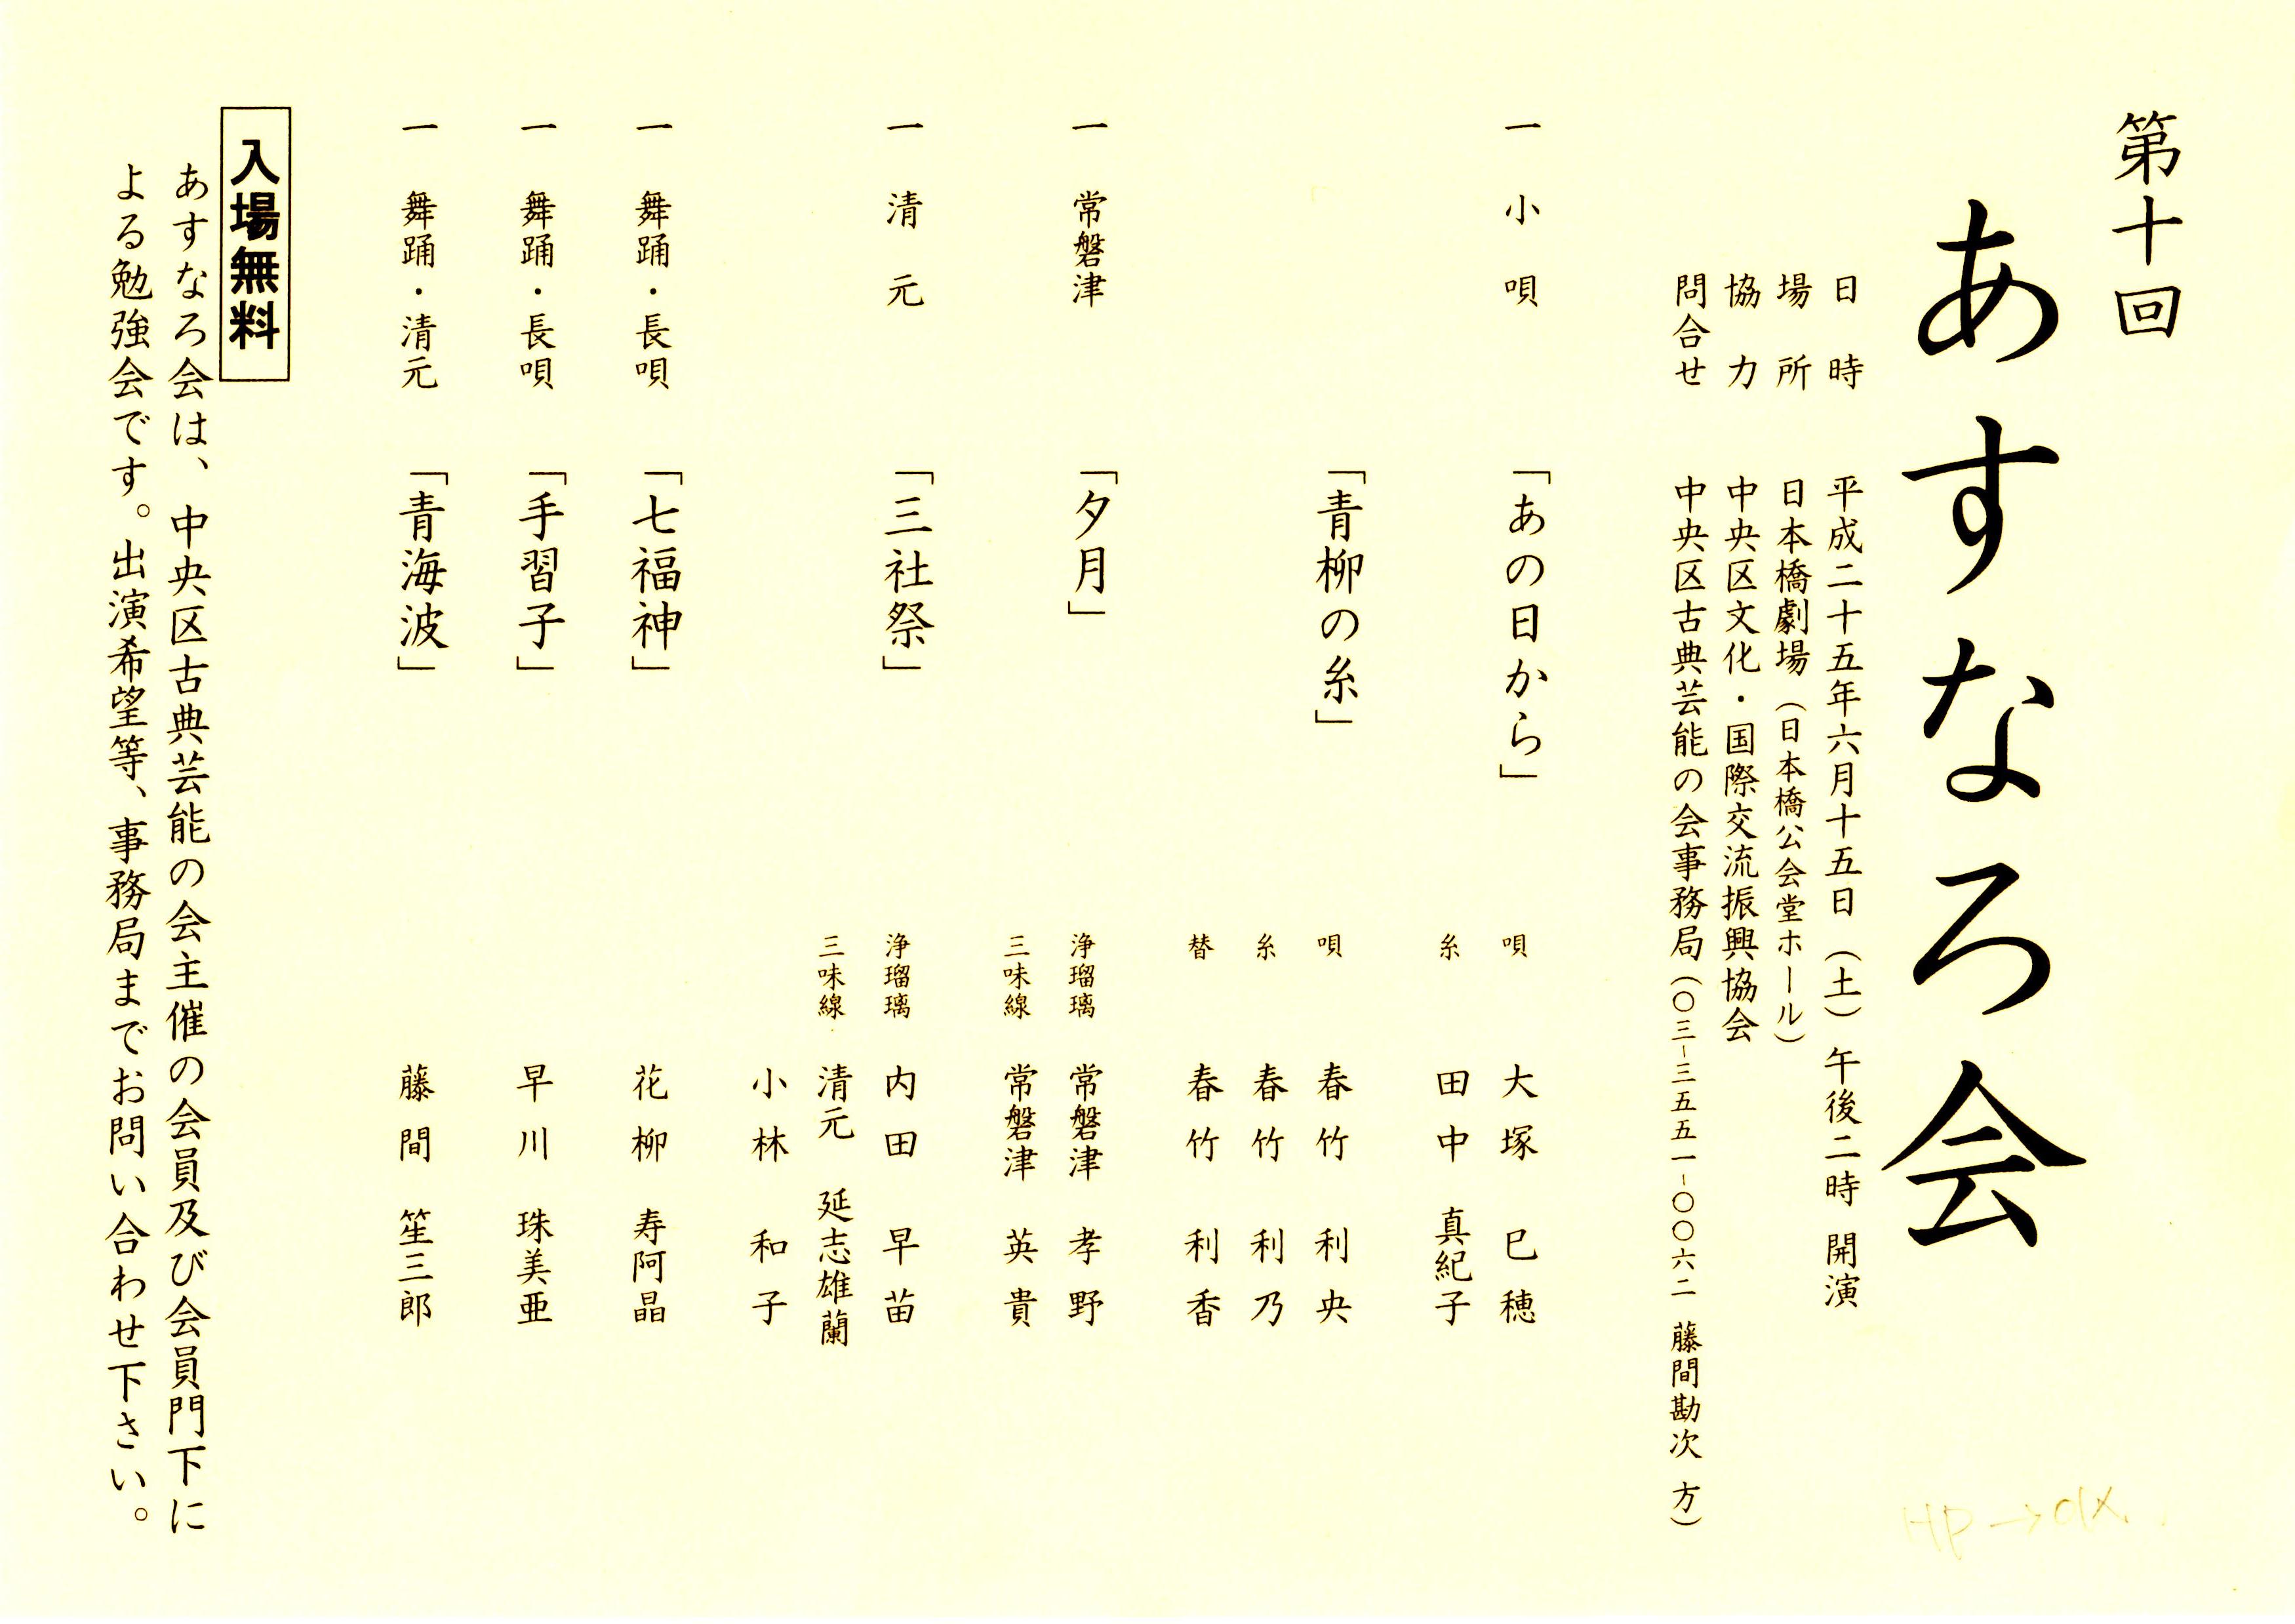 第十回
あすなろ会
日時 平成二十五年六月十五日（土）午後二時 開演
場所 日本橋劇場（日本橋公会堂ホール）
協力 中央区文化・国際交流振興協会
問合せ 中央区古典芸能の会事務局（〇三-三五五一-〇〇六二 藤間勘次 方）
一 小唄 「あの日から」 唄 大塚 巳穂
糸 田中 真紀子
「青柳の糸」 唄 春竹 利央
糸 春竹 利乃
替 春竹 利香
一 常磐津 「夕月」 浄瑠璃 常磐津 孝野
三味線 常磐津 英貴
一 清元 「三社祭」 浄瑠璃 内田 早苗
三味線 清元 延志雄蘭
小林 和子
一 舞踊・長唄 「七福神」 花柳 寿阿晶
一 舞踊・長唄 「手習子」 早川 珠美亜
一 舞踊・清元 「青海波」 藤間 笙三郎
入場無料
あすなろ会は、中央区古典芸能の会主催の会員及び会員門下に
よる勉強会です。出演希望等、事務局までお問い合わせ下さい。